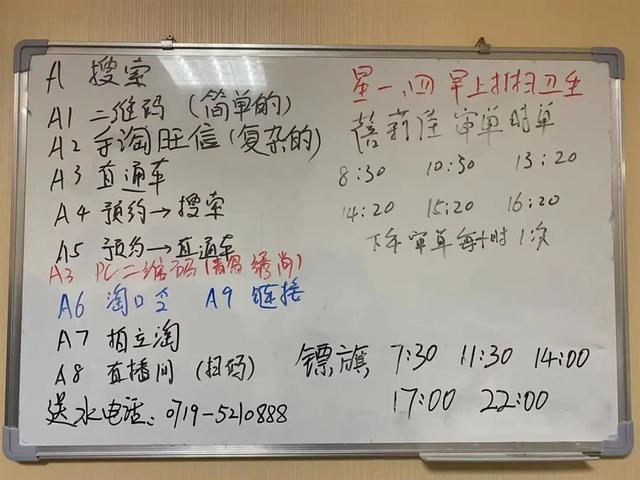 A 搜索
A1 二维码 (简单的)
A2 手淘旺信 (复杂的)
A3 直通车
A4 预约→搜索
A5 预约→直通车
A3 PC二维码
A6 淘口令 A9 链接
A7 拍立淘
A8 直播间 (扫码)
送水电话: 0719-5210888
星一、四 早上打扫卫生
蓓莉佳 审单时单
8:30 10:30 13:20
14:20 15:20 16:20
下午审单每小时1次
镖旗 7:30 11:30 14:00
17:00 22:00